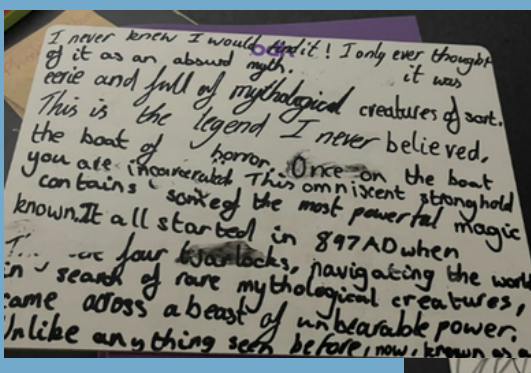 I never knew I would find it! I only ever thought
of it as an absurd myth. it was
eerie and full of mythological creatures of sort.
This is the legend I never believed,
the boat of horror. Once on the boat
you are incarcerated. This omniscent stronghold
contains some of the most powerful magic
known. It all started in 897AD when
four warlocks, navigating the world
in search of rare mythological creatures,
came across a beast of unbearable power.
Unlike anything seen before, now, known as a